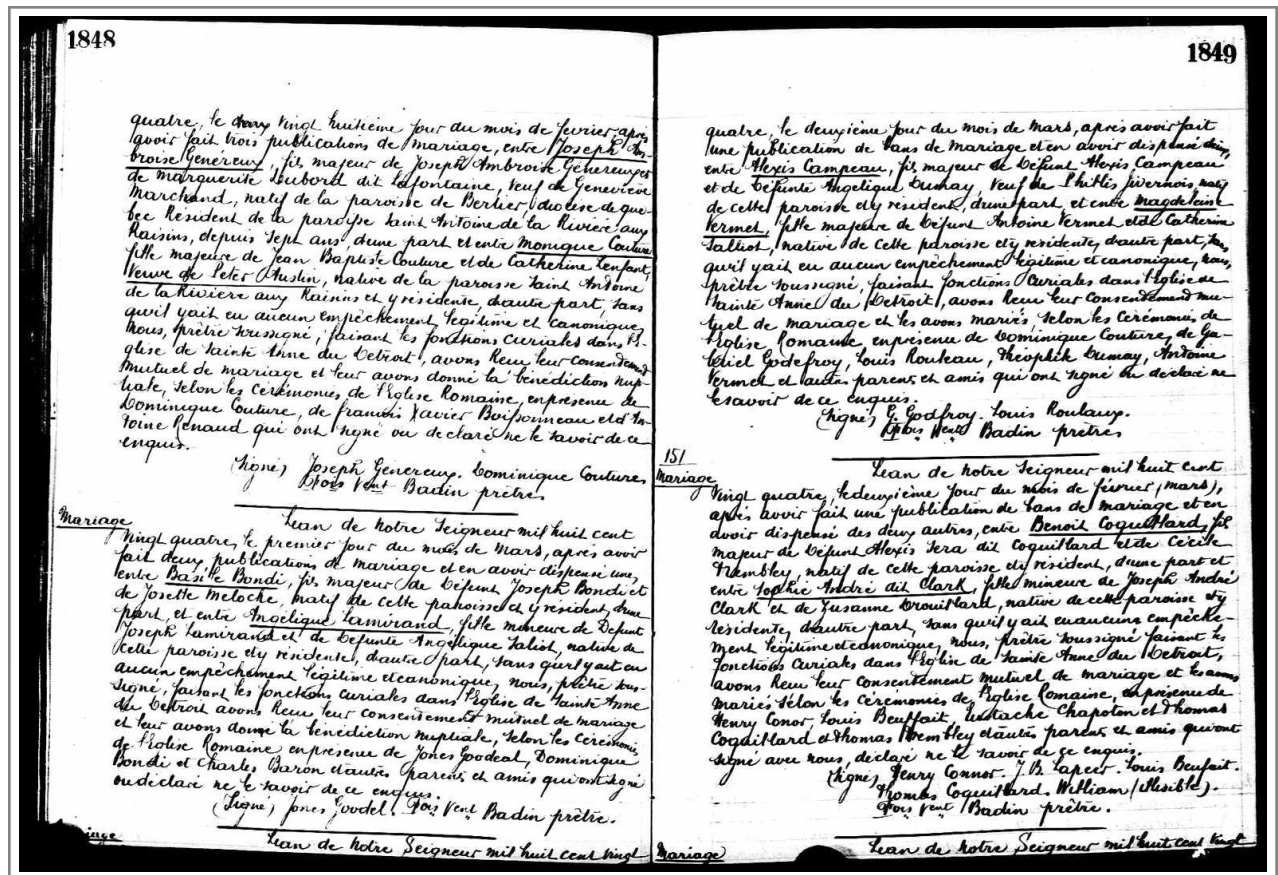 1848
quatre, le vingt huitième jour du mois de fevrier, après
avoir fait trois publications de mariage, entre Joseph Am-
broise Généreux, fils majeur de Joseph Ambroise Généreux et
de Marguerite Dubord dit Lafontaine, Veuf de Geneviève
Marchand, natif de la paroisse de Bertier, diocèse de que-
bec Résident de la paroisse Saint Antoine de la Rivière aux
Raisins, depuis sept ans, d'une part et entre Monique Couture
fille majeure de Jean Baptiste Couture et de Catherine Lenfant,
Veuve de Peter Austin, native de la paroisse Saint Antoine
de la Rivière aux Raisins et y résidente, d'autre part, sans
qu'il y ait eu aucun empêchement légitime et canonique,
Nous, prêtre soussigné, faisant les fonctions curiales dans l'E-
glise de Sainte Anne du Détroit, avons Reçu leur consentement
Mutuel de mariage et leur avons donné la bénédiction nup-
tiale, selon les cérémonies de l'Eglise Romaine, en presence de
Dominique Couture, de francois Xavier Boissonneau et d'An-
toine Renaud qui ont signé ou declaré ne le savoir de ce
enquis.
(Signé) Joseph Généreux. Dominique Couture
Badin prêtre
Mariage
L'an de Notre Seigneur mil huit cent
Vingt quatre, le premier jour du mois de Mars, après avoir
fait deux publications de mariage et en avoir dispensé une,
entre Basile Bondi, fils majeur de Défunt Joseph Bondi et
de Josette Meloche, natif de cette paroisse et y résident, d'une
part, et entre Angélique Lamirand, fille mineure de Défunt
Joseph Lamirand et de Défunte Angélique Saliot, native de
cette paroisse et y résidente, d'autre part, sans qu'il y ait eu
aucun empêchement légitime et canonique, nous, prêtre sous-
signé, faisant les fonctions curiales dans l'Eglise de Sainte Anne
du Détroit avons Reçu leur consentement mutuel de mariage
et leur avons donné la bénédiction nuptiale, selon les cérémonies
de l'Eglise Romaine en presence de Jones Goodeal, Dominique
Bondi et Charles Baron et autres parents et amis qui ont signé
ou déclaré ne le savoir de ce enquis.
(Signé) Jones Goodel. Badin prêtre.
L'an de Notre Seigneur mil huit cent vingt
1849
quatre, le deuxième jour du mois de Mars, après avoir fait
une publication de bans de mariage et en avoir dispensé
entre Alexis Campeau, fils majeur de Défunt Alexis Campeau
et de Défunte Angelique Dumay, Veuf de Livernois, natif
de cette paroisse et y resident, d'une part, et entre Magdeleine
Vermet, fille majeure de Défunt Antoine Vermet et de Catherine
Salliot, native de cette paroisse et y residente, d'autre part, sans
qu'il y ait eu aucun empêchement légitime et canonique, nous,
prêtre soussigné, faisant fonctions curiales dans l'Eglise de
Sainte Anne du Détroit, avons Reçu leur consentement mu-
tuel de mariage et les avons mariés, selon les cérémonies de
l'Eglise Romaine, en presence de Dominique Couture, de Ga-
briel Godefroy, Louis Rouleau, Dumay, Antoine
Vermet et autres parents et amis qui ont signé ou déclaré ne
le savoir de ce enquis.
(Signé) G. Godfroy. Louis Roulaux.
Badin prêtre
151
Mariage
L'an de Notre Seigneur mil huit cent
Vingt quatre, le deuxième jour du mois de février (mars),
après avoir fait une publication de bans de mariage et en
avoir dispensé des deux autres, entre Benoit Coquillard, fils
majeur de Défunt Alexis Sera dit Coquillard et de Cécile
Trembley, natif de cette paroisse et y résident, d'une part et
entre Sophie André dit Clark, fille mineure de Joseph André
Clark et de Suzanne Drouillard, native de cette paroisse et y
residente, d'autre part, sans qu'il y ait eu aucuns empêche-
ment légitime et canonique, nous, prêtre soussigné faisant les
fonctions curiales dans l'Eglise de Sainte Anne du Détroit,
avons Reçu leur consentement mutuel de mariage et les avons
mariés selon les cérémonies de l'Eglise Romaine, en presence de
Henry Conor, Louis Beuffait, Eustache Chapoton et Thomas
Coquillard et Thomas Trembley et autres parents et amis qui ont
signé avec nous, déclaré ne le savoir de ce enquis.
(Signé) Henry Connor. J. B. Lapeer. Louis Beufait.
Thomas Coquillard. William (illisible).
Badin prêtre.
Mariage
L'an de Notre Seigneur mil huit cent vingt